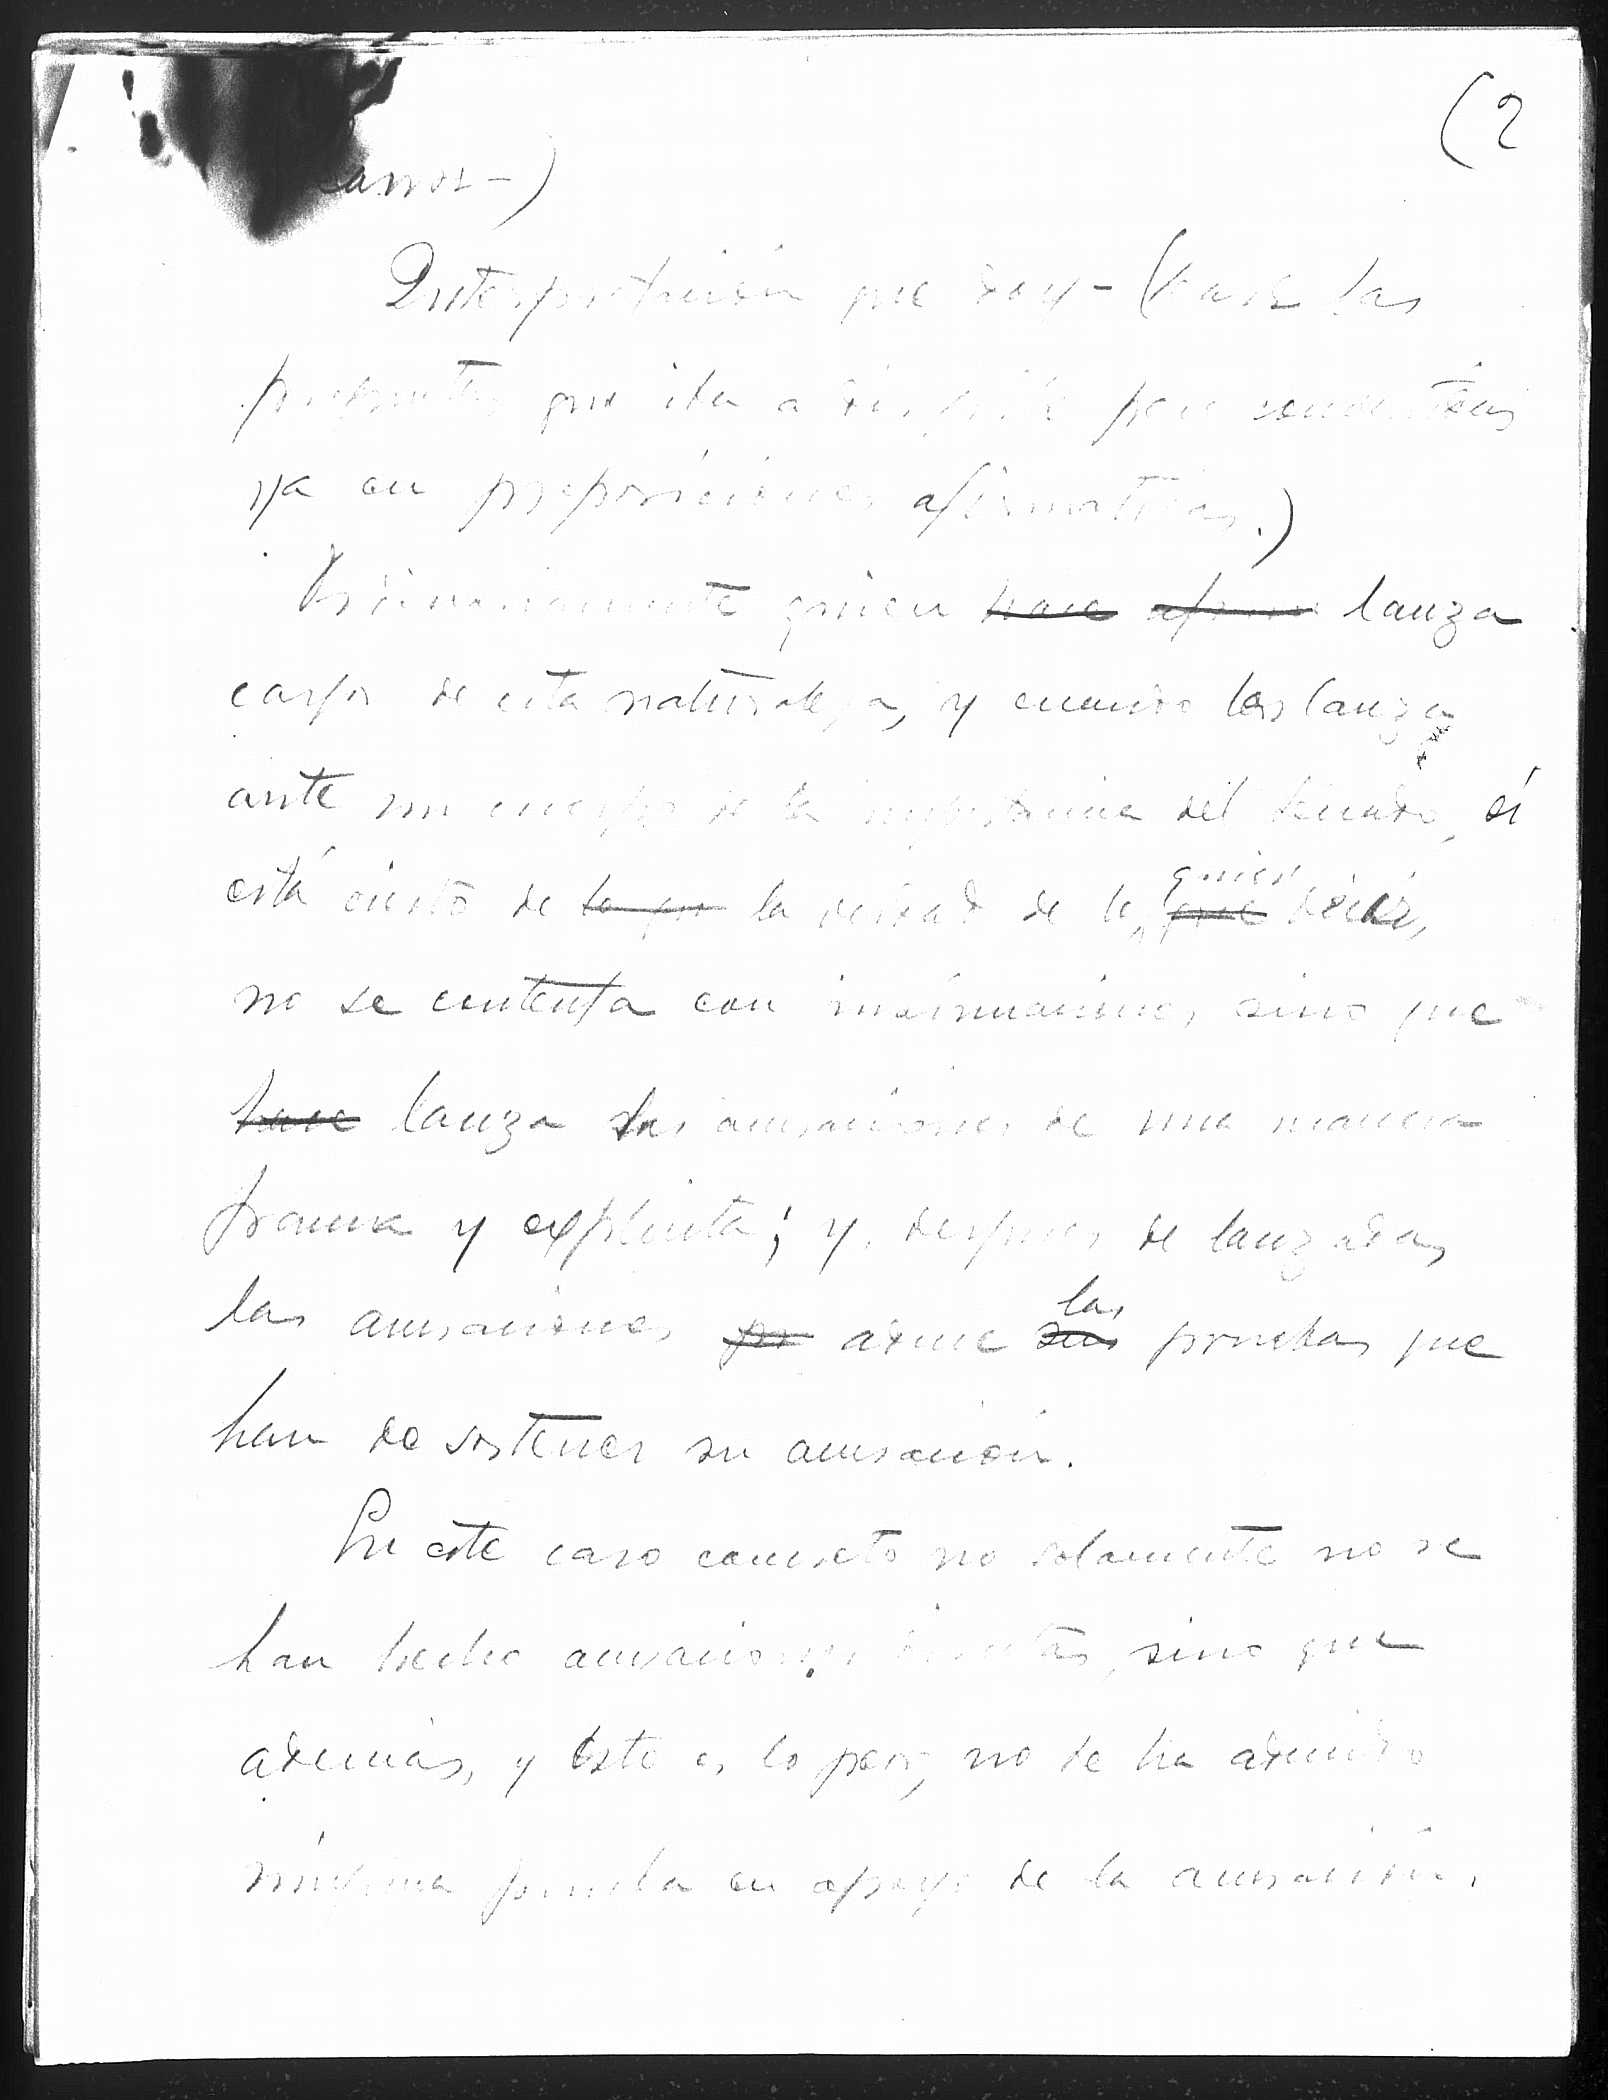 (2
Interpretación que doy - (hacer las
preguntas que iba a dirigirle pero convertidas
ya en proposiciones afirmativas.)
Ordinariamente quien hace lanza
cargos de esta naturaleza, y cuando los lanza
ante un cuerpo de la importancia del Senado, si
está cierto de lo que la verdad de lo quiere
que decir,
no se contenta con insinuaciones sino que
hace lanza las acusaciones de una manera
franca y explícita; y, despues de lanzadas
las acusaciones aduce las
sus pruebas que
han de sostener su acusación.
En este caso concreto no solamente no se
han hecho acusaciones directas, sino que
además, y esto es lo peor, no se ha aducido
ninguna prueba en apoyo de la acusación.